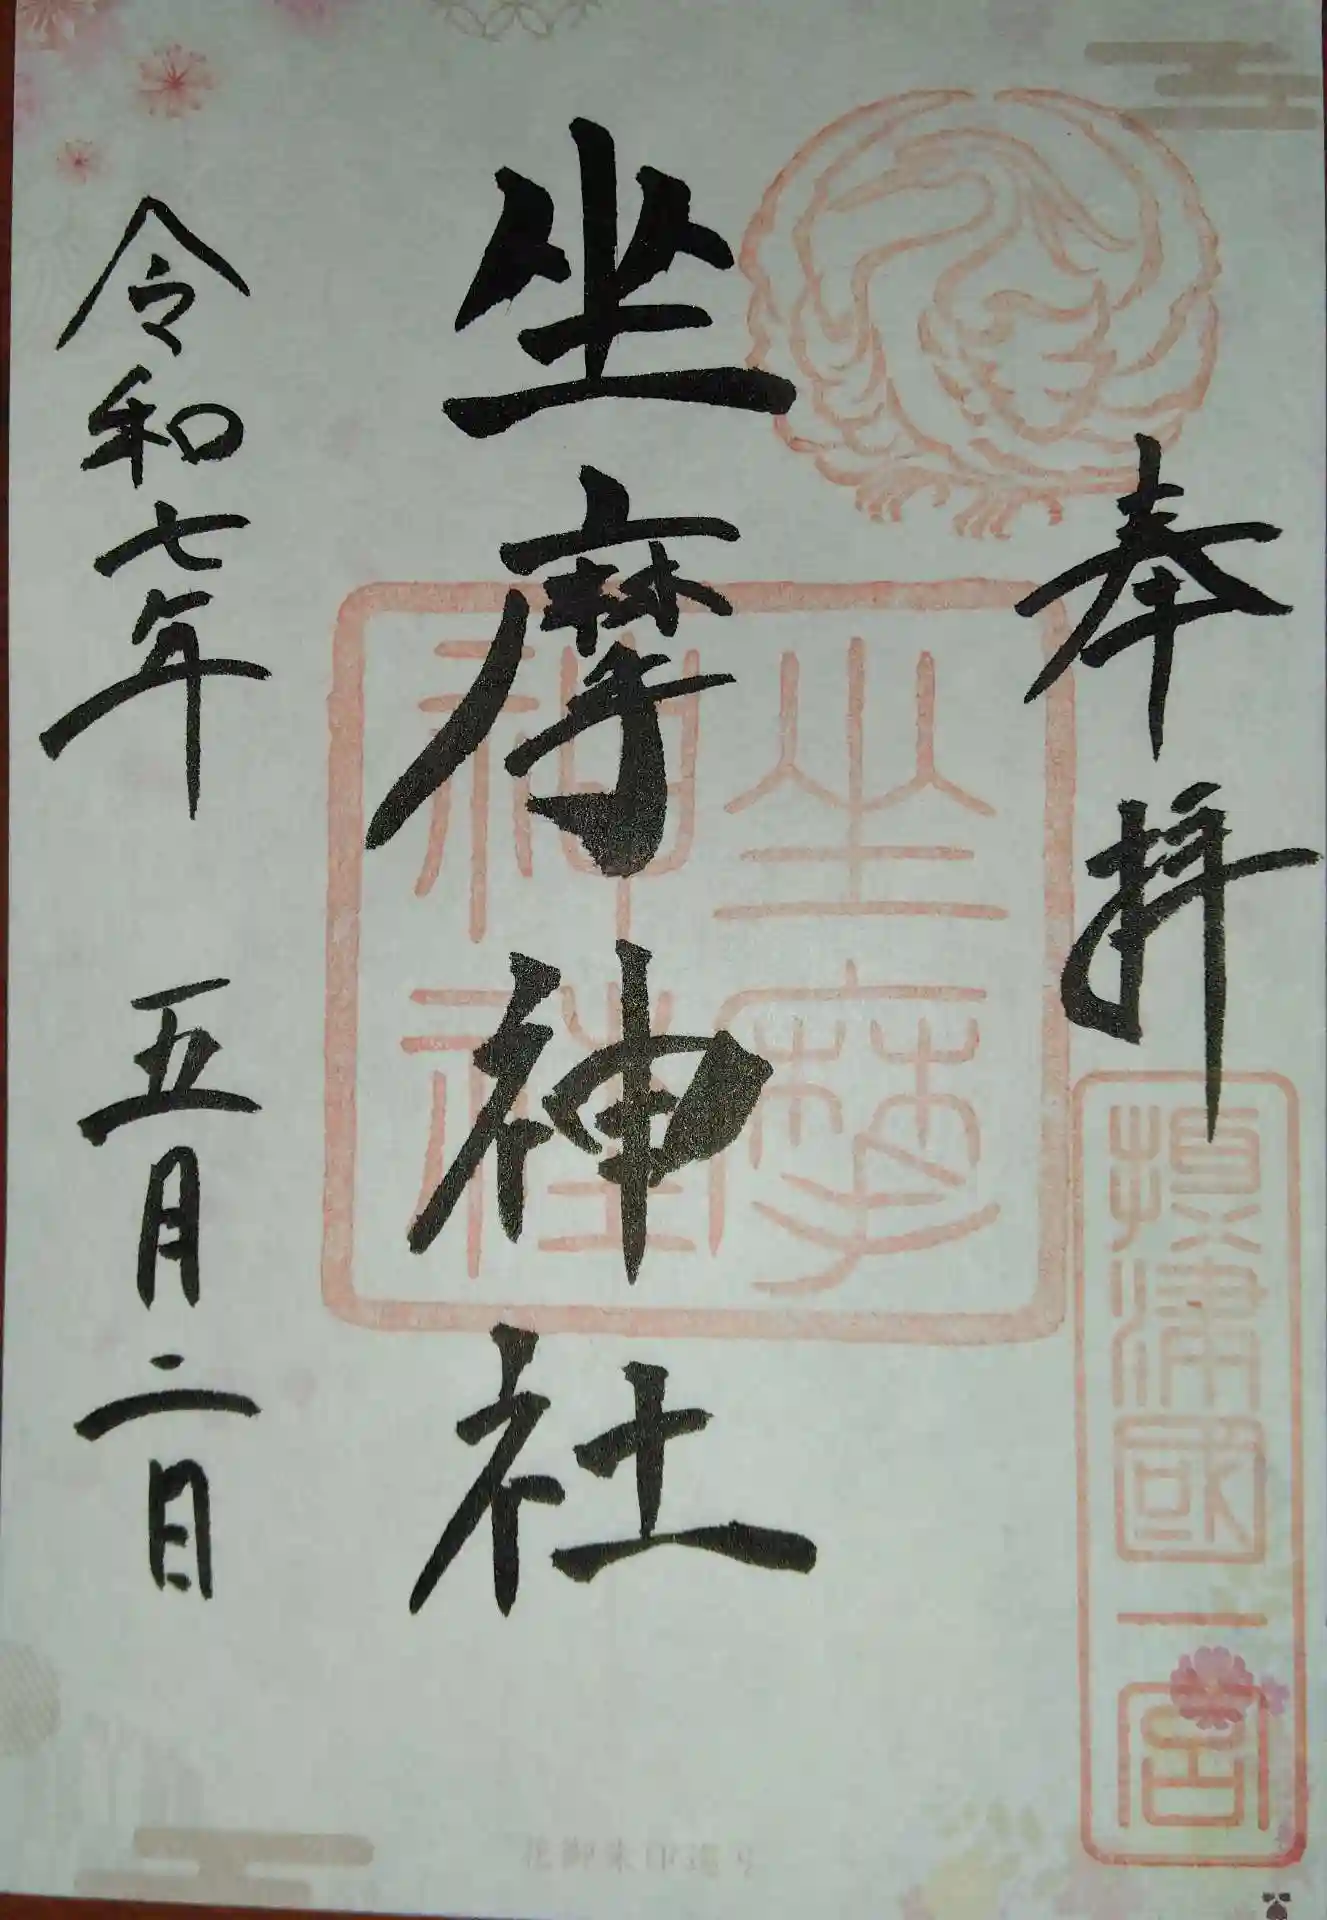 奉拝
攝津國一宮
坐摩神社
坐摩
神社
令和七年 五月二日
花御朱印巡り